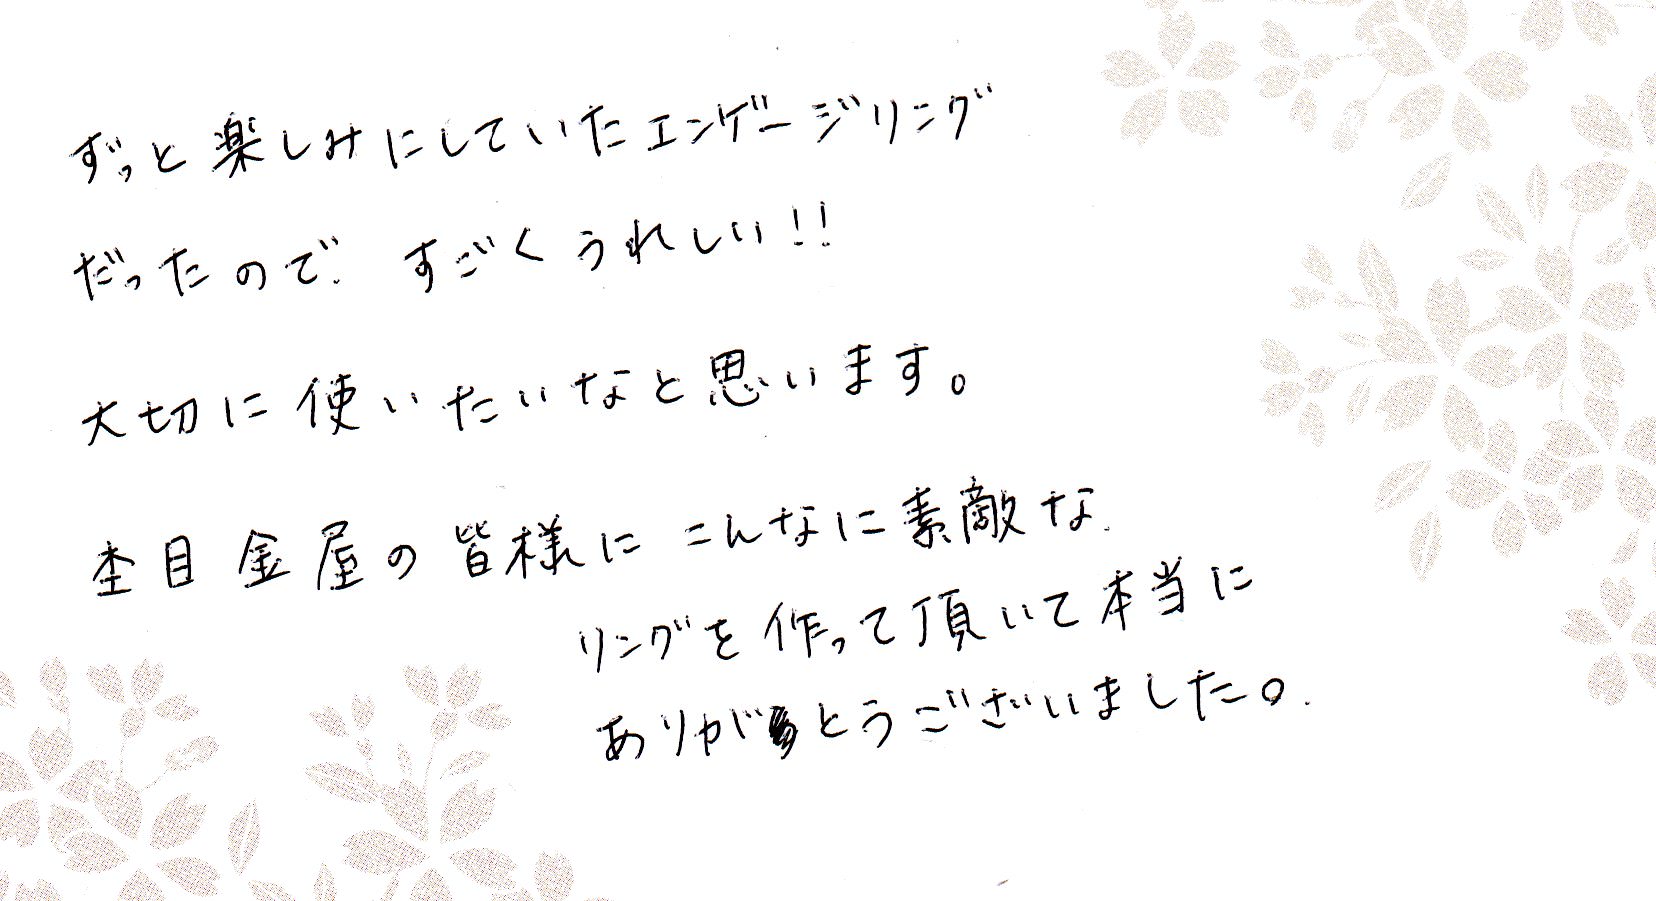 ずっと楽しみにしていたエンゲージリング
だったので、すごくうれしい!!
大切に使いたいなと思います。
杢目金屋の皆様にこんなに素敵な
リングを作って頂いて本当に
ありがとうございました。